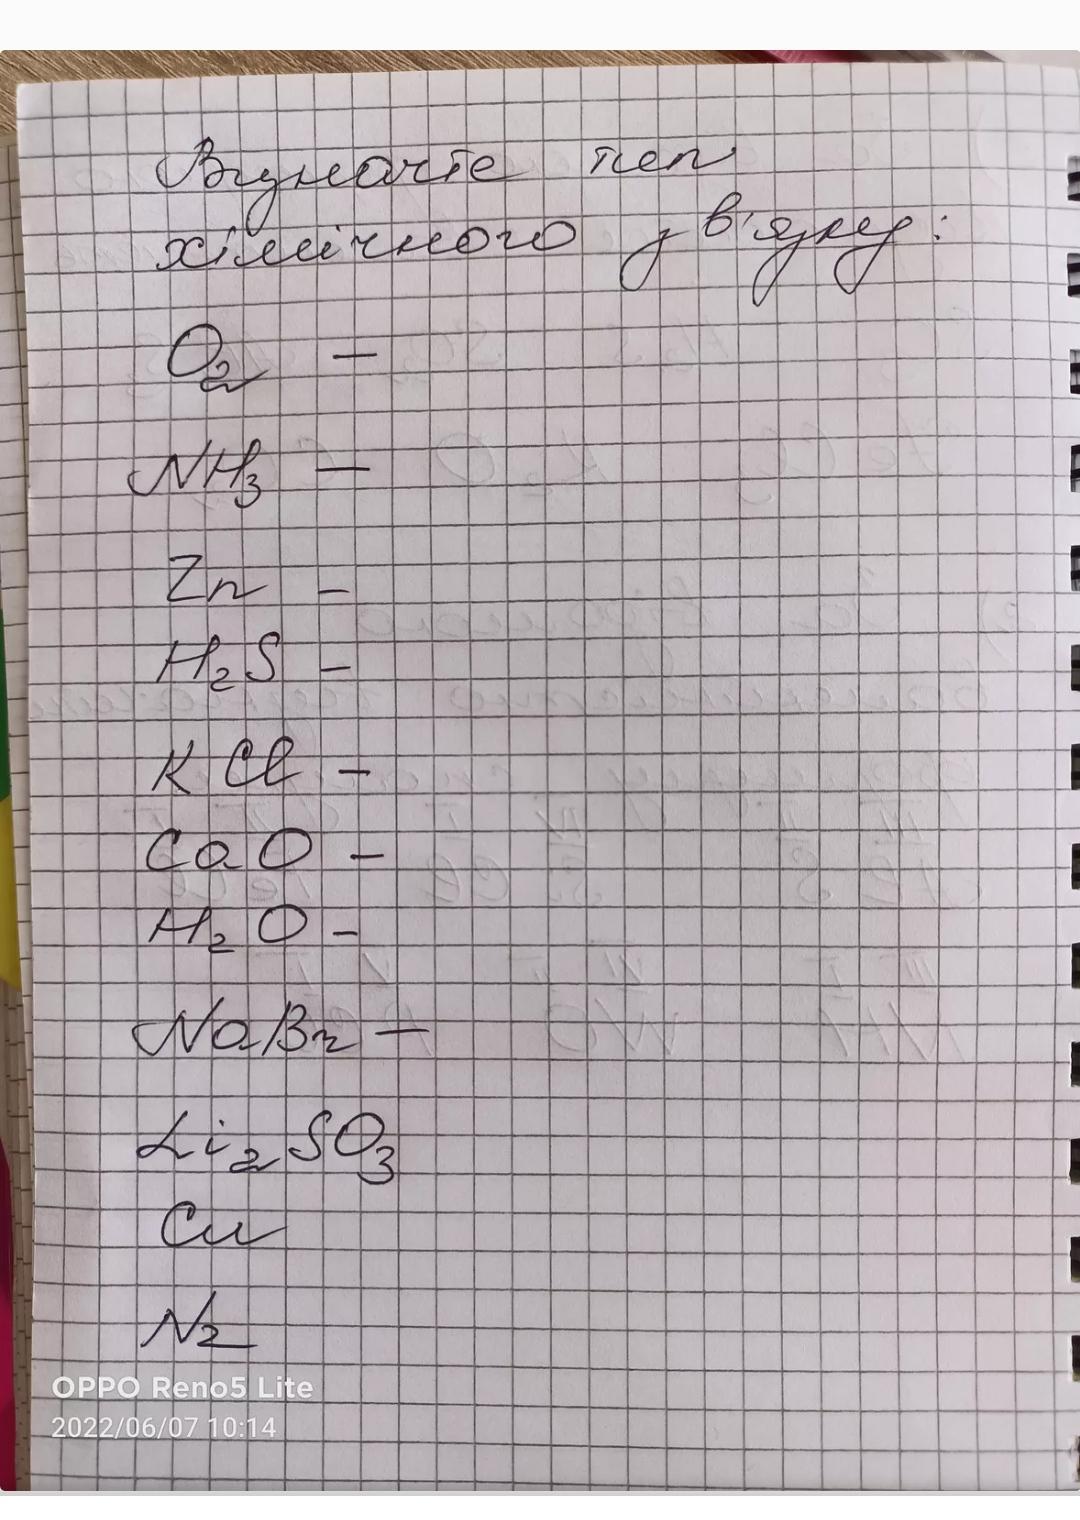 Визначте тип
хімічного зв'язку:
O2 —
NH3 —
Zn –
H2S –
KCl –
CaO –
H2O –
NaBr —
Li2SO3
Cu
N2
OPPO Reno5 Lite
2022/06/07 10:14